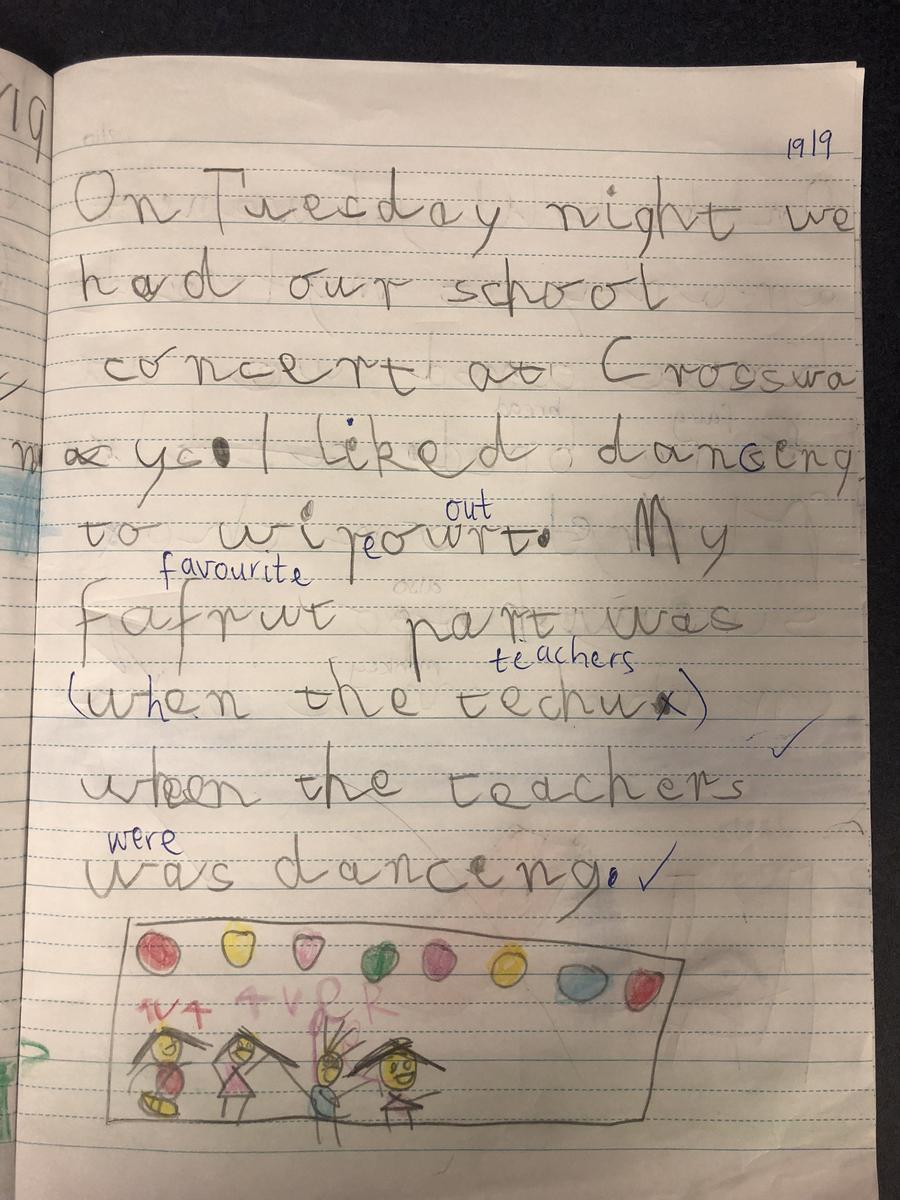 19
19/9
On Tuesday night we
had our school
concert at Crosswa
ys. I liked danceng
out
to wipeowrt. My
favourite
fafrut part was
teachers
(when the techux)
when the teachers
were
was danceng.